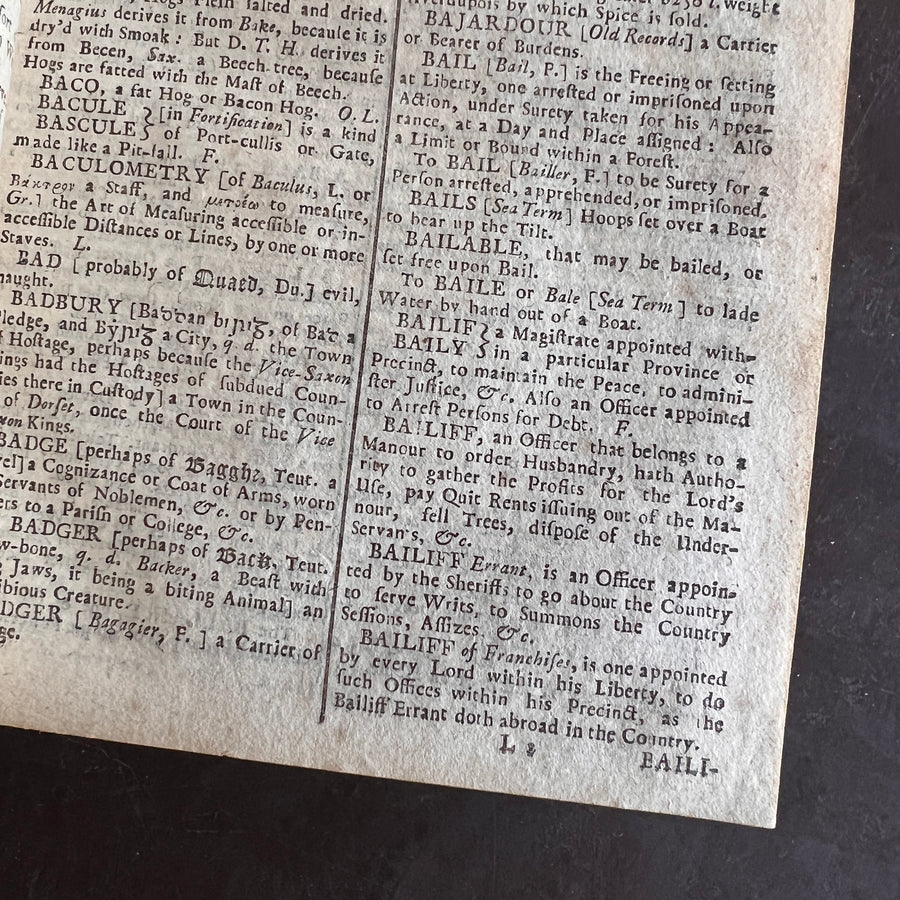 Hogs Flesh salted and dried.
Menagius derives it from Bake, because it is
dry'd with Smoak: But D. T. H. derives it
from Becen, Sax. a Beech-tree, because
Hogs are fatted with the Mast of Beech.
BACO, a fat Hog or Bacon Hog. O. L.
BACULE } [in Fortification] is a kind
BASCULE } of Port-cullis or Gate,
made like a Pit-fall. F.
BACULOMETRY [of Baculus, L. or
a Staff, and μετρέω to measure,
Gr.] the Art of Measuring accessible or in-
accessible Distances or Lines, by one or more
Staves. L.
BAD [probably of Quaed, Du.] evil,
naught.
BADBURY [Baððan bẏriᵹ, of Bað a
ledge, and Bẏriᵹ a City, q. d. the Town
Hostage, perhaps because the Vice-Saxon
ings had the Hostages of subdued Coun-
ies there in Custody] a Town in the Coun-
of Dorset, once the Court of the Vice
xon Kings.
BADGE [perhaps of Bagghe, Teut. a
vel] a Cognizance or Coat of Arms, worn
Servants of Noblemen, &c. or by Pen-
ers to a Parish or College, &c.
BADGER [perhaps of Back, Teut.
w-bone, q. d. Backer, a Beast with
Jaws, it being a biting Animal] an
ibious Creature.
DGER [Bagagier, F.] a Carrier of
ge.
by which Spice is sold.
BAJARDOUR [Old Records] a Carrier
or Bearer of Burdens.
BAIL [Bail, F.] is the Freeing or setting
at Liberty, one arrested or imprisoned upon
Action, under Surety taken for his Appea-
rance, at a Day and Place assigned: Also
a Limit or Bound within a Forest.
To BAIL [Bailler, F.] to be Surety for a
Person arrested, apprehended, or imprisoned.
BAILS [Sea Term] Hoops set over a Boat
to bear up the Tilt.
BAILABLE, that may be bailed, or
set free upon Bail.
To BAILE or Bale [Sea Term] to lade
Water by hand out of a Boat.
BAILIF } a Magistrate appointed with-
BAILY } in a particular Province or
Precinct, to maintain the Peace, to admini-
ster Justice, &c. Also an Officer appointed
to Arrest Persons for Debt. F.
BAILIFF, an Officer that belongs to a
Manour to order Husbandry, hath Autho-
rity to gather the Profits for the Lord's
Use, pay Quit Rents issuing out of the Ma-
nour, fell Trees, dispose of the Under-
Servan's, &c.
BAILIFF Errant, is an Officer appoin-
ted by the Sheriffs to go about the Country
to serve Writs, to Summons the Country
Sessions, Assizes, &c.
BAILIFF of Franchises, is one appointed
by every Lord within his Liberty, to do
such Offices within his Precinct, as the
Bailiff Errant doth abroad in the Country.
L 2
BAILI-